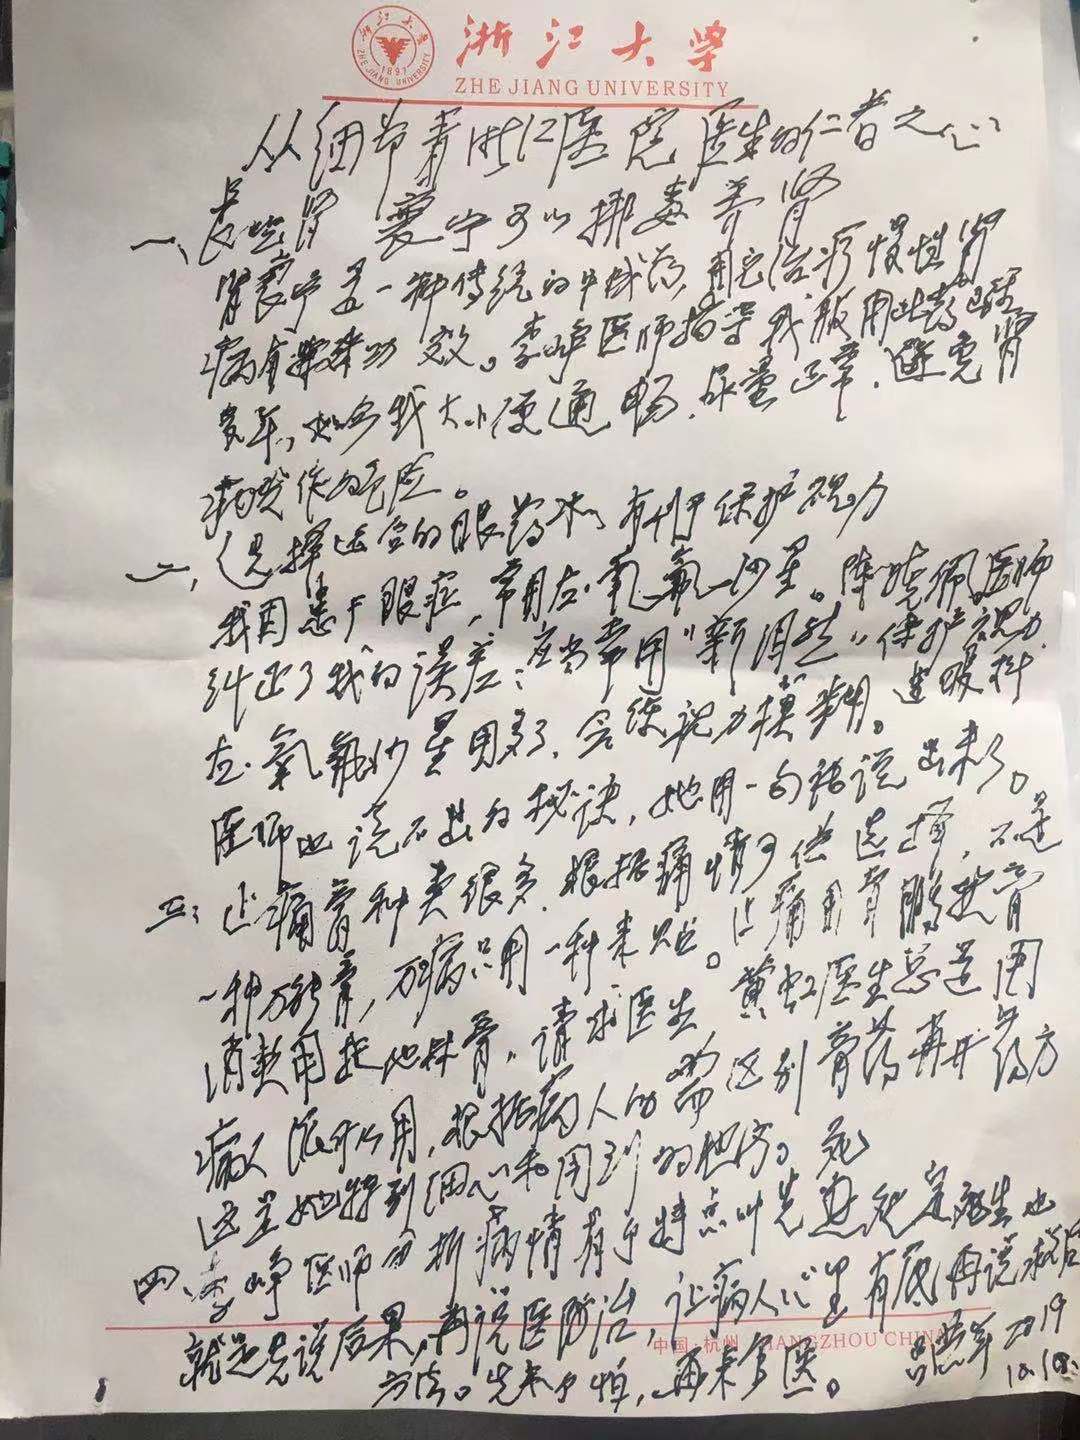 浙江大学
ZHE JIANG UNIVERSITY
浙江大学
ZHE JIANG UNIVERSITY
1897
从细节看浙江医院医生的仁者之心
一、长吃肾衰宁可以排毒养肾
肾衰宁是一种传统的中成药,用它治疗慢性肾
病有 功效。李峥医师指导我服用此药
多年, 我大小便通畅,尿量正常,避免肾
病发作的危险。
二、选择适合的眼药水,有利于保护视力
我因患干眼症,常用左氧氟沙星。陈晓佩医师
纠正了我的误差:应当常用"新泪然"保护视力
左氧氟沙星用多了,会使视力模糊。连眼科
医师也说不出的秘诀,她用一句话说出来了。
三、止痛膏种类很多,根据病情可供选择,不是
一种万能膏,万病只用一种来贴。止痛用骨 膏
消炎用 膏,请求医生,黄虹医生总是问
病人派什么用,根据病人的需区别膏药再开药方
这是她特别细心和周到的地方。
四、李峥医师分析病情有个特点叫先 也
就是先说后果,再说医防治,让病人心里有底再说救治
方法。先来个怕,再来个医。
2019
10.10
中国·杭州 HANGZHOU CHINA